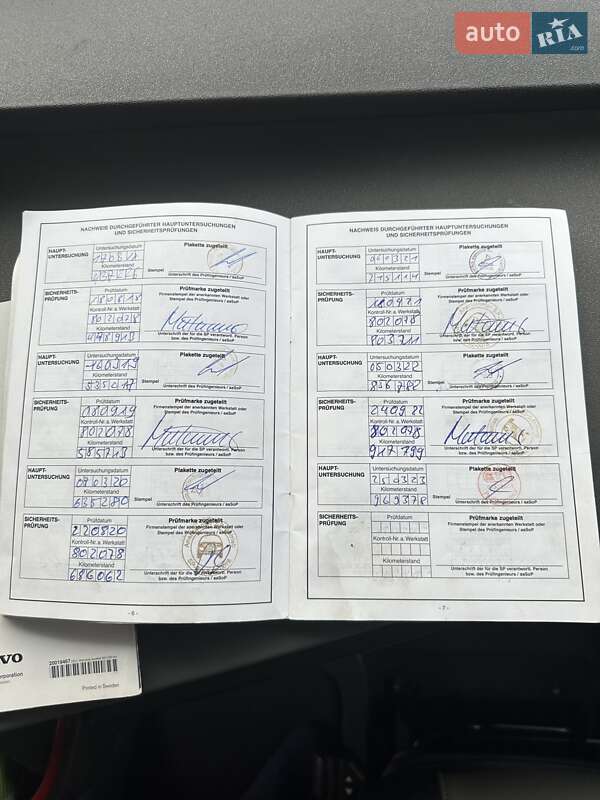 auto RIA.com
NACHWEIS DURCHGEFÜHRTER HAUPTUNTERSUCHUNGEN
UND SICHERHEITSPRÜFUNGEN
HAUPT-
UNTERSUCHUNG
Untersuchungsdatum
Kilometerstand
Plakette zugeteilt
Stempel
Unterschrift des Prüfingenieurs / aaSoP
SICHERHEITS-
PRÜFUNG
Prüfdatum
180818
Kontroll-Nr. a. Werkstatt
802078
Kilometerstand
Prüfmarke zugeteilt
Firmenstempel der anerkannten Werkstatt oder
Stempel des Prüfingenieurs / aaSoP
Unterschrift der für die SP verantwortl. Person
bzw. des Prüfingenieurs / aaSoP
HAUPT-
UNTERSUCHUNG
Untersuchungsdatum
Kilometerstand
Plakette zugeteilt
Stempel
Unterschrift des Prüfingenieurs / aaSoP
SICHERHEITS-
PRÜFUNG
Prüfdatum
080919
Kontroll-Nr. a. Werkstatt
802078
Kilometerstand
Prüfmarke zugeteilt
Firmenstempel der anerkannten Werkstatt oder
Stempel des Prüfingenieurs / aaSoP
Unterschrift der für die SP verantwortl. Person
bzw. des Prüfingenieurs / aaSoP
HAUPT-
UNTERSUCHUNG
Untersuchungsdatum
070320
Kilometerstand
635280
Plakette zugeteilt
Stempel
Unterschrift des Prüfingenieurs / aaSoP
SICHERHEITS-
PRÜFUNG
Prüfdatum
220820
Kontroll-Nr. a. Werkstatt
802078
Kilometerstand
686062
Prüfmarke zugeteilt
Firmenstempel der anerkannten Werkstatt oder
Stempel des Prüfingenieurs / aaSoP
Unterschrift der für die SP verantwortl. Person
bzw. des Prüfingenieurs / aaSoP
- 6 -
NACHWEIS DURCHGEFÜHRTER HAUPTUNTERSUCHUNGEN
UND SICHERHEITSPRÜFUNGEN
HAUPT-
UNTERSUCHUNG
Untersuchungsdatum
Kilometerstand
Plakette zugeteilt
Stempel
Unterschrift des Prüfingenieurs / aaSoP
SICHERHEITS-
PRÜFUNG
Prüfdatum
Kontroll-Nr. a. Werkstatt
802078
Kilometerstand
803711
Prüfmarke zugeteilt
Firmenstempel der anerkannten Werkstatt oder
Stempel des Prüfingenieurs / aaSoP
Unterschrift der für die SP verantwortl. Person
bzw. des Prüfingenieurs / aaSoP
HAUPT-
UNTERSUCHUNG
Untersuchungsdatum
050322
Kilometerstand
Plakette zugeteilt
Stempel
Unterschrift des Prüfingenieurs / aaSoP
SICHERHEITS-
PRÜFUNG
Prüfdatum
240922
Kontroll-Nr. a. Werkstatt
802078
Kilometerstand
917799
Prüfmarke zugeteilt
Firmenstempel der anerkannten Werkstatt oder
Stempel des Prüfingenieurs / aaSoP
Unterschrift der für die SP verantwortl. Person
bzw. des Prüfingenieurs / aaSoP
HAUPT-
UNTERSUCHUNG
Untersuchungsdatum
250323
Kilometerstand
969378
Plakette zugeteilt
Stempel
Unterschrift des Prüfingenieurs / aaSoP
SICHERHEITS-
PRÜFUNG
Prüfdatum
Kontroll-Nr. a. Werkstatt
Kilometerstand
Prüfmarke zugeteilt
Firmenstempel der anerkannten Werkstatt oder
Stempel des Prüfingenieurs / aaSoP
Unterschrift der für die SP verantwortl. Person
bzw. des Prüfingenieurs / aaSoP
- 7 -
vo
rporation
20018467
Printed in Sweden